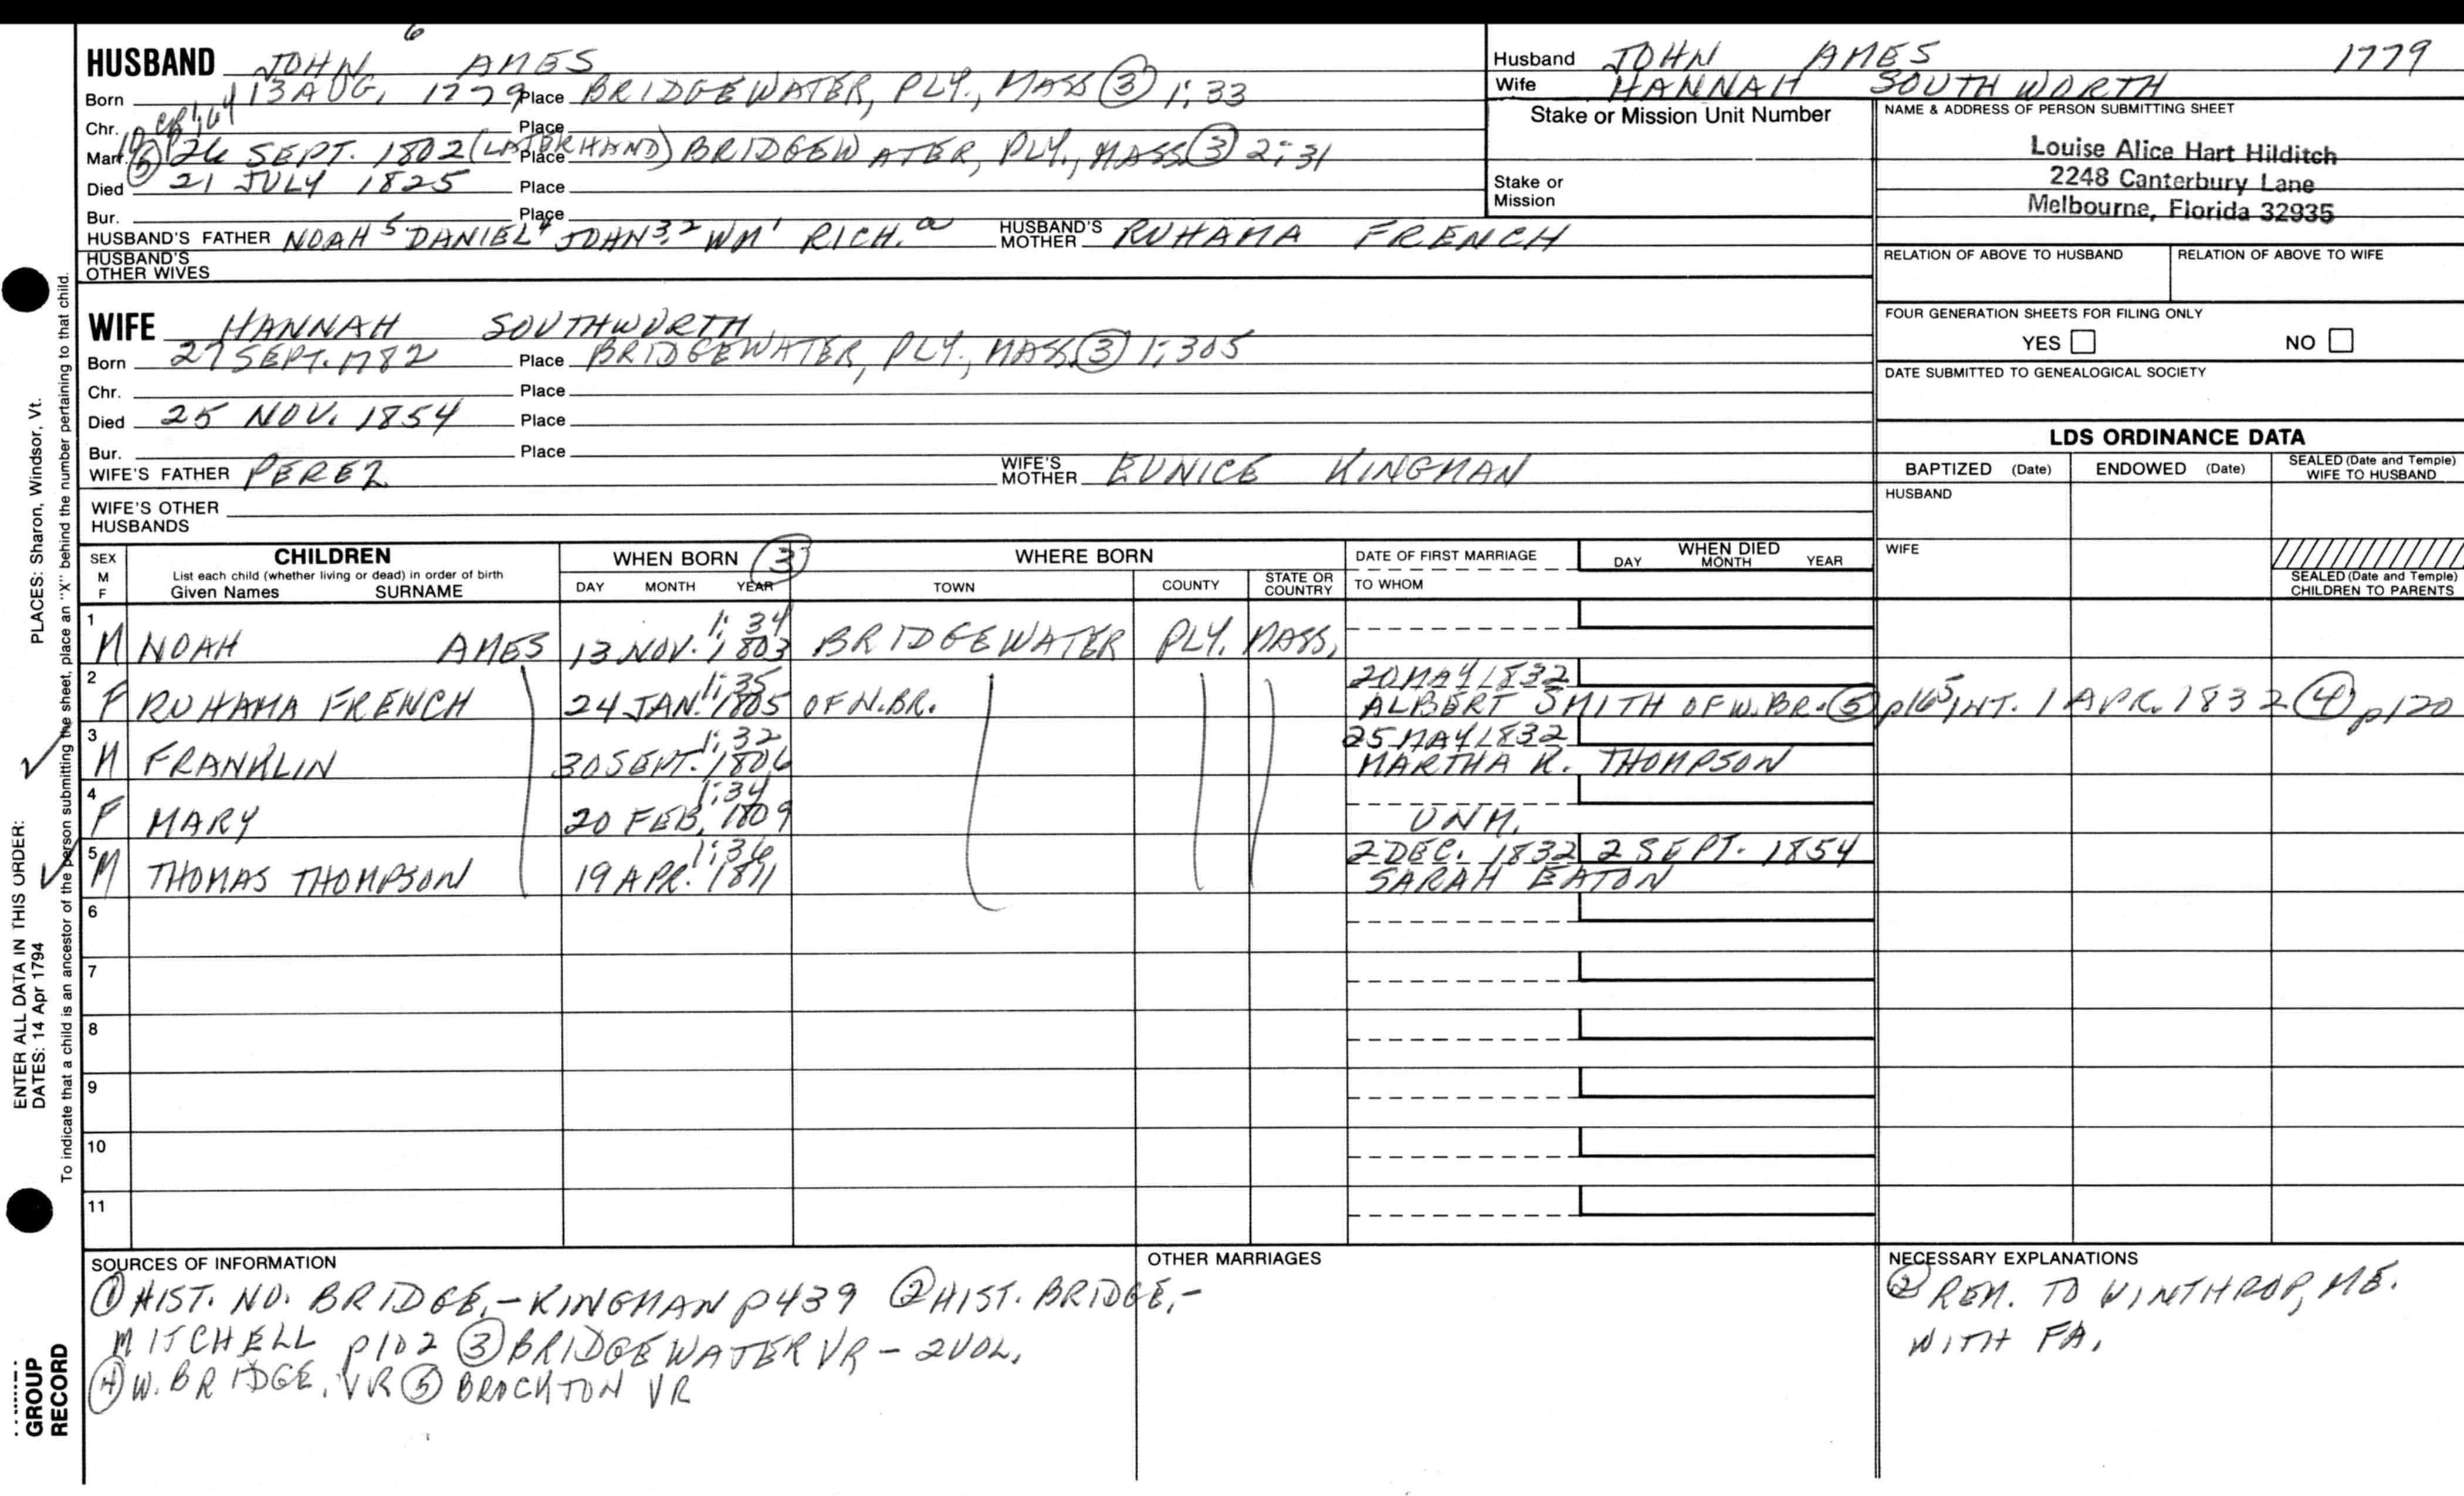 6
HUSBAND JOHN AMES
Born 13 AUG. 1779 Place BRIDGEWATER, PLY., MASS (3) 1:33
Chr. Place
Marr. (5) 26 SEPT. 1802 (LATER HAND) Place BRIDGEWATER, PLY., MASS (3) 2:31
Died 21 JULY 1825 Place
Bur. Place
HUSBAND'S FATHER NOAH 5 DANIEL 4 JOHN 3,2 WM 1 RICH. a HUSBAND'S MOTHER RUHAMA FRENCH
HUSBAND'S OTHER WIVES
Husband JOHN AMES 1779
Wife HANNAH SOUTHWORTH
Stake or Mission Unit Number
Stake or Mission
NAME & ADDRESS OF PERSON SUBMITTING SHEET
Louise Alice Hart Hilditch
2248 Canterbury Lane
Melbourne, Florida 32935
RELATION OF ABOVE TO HUSBAND RELATION OF ABOVE TO WIFE
FOUR GENERATION SHEETS FOR FILING ONLY
YES NO
DATE SUBMITTED TO GENEALOGICAL SOCIETY
WIFE HANNAH SOUTHWORTH
Born 27 SEPT. 1782 Place BRIDGEWATER, PLY., MASS (3) 1:305
Chr. Place
Died 25 NOV. 1854 Place
Bur. Place
WIFE'S FATHER PEREZ WIFE'S MOTHER EUNICE KINGMAN
WIFE'S OTHER HUSBANDS
LDS ORDINANCE DATA
BAPTIZED (Date) ENDOWED (Date) SEALED (Date and Temple) WIFE TO HUSBAND
HUSBAND
WIFE
SEALED (Date and Temple) CHILDREN TO PARENTS
SEX M F
CHILDREN
List each child (whether living or dead) in order of birth
Given Names SURNAME
WHEN BORN (3)
DAY MONTH YEAR
WHERE BORN
TOWN COUNTY STATE OR COUNTRY
DATE OF FIRST MARRIAGE
TO WHOM
WHEN DIED
DAY MONTH YEAR
1 M NOAH AMES 1:34 13 NOV. 1803 BRIDGEWATER PLY. MASS.
2 F RUHAMA FRENCH 1:35 24 JAN. 1805 OF N.BR. 20 MAY 1832
ALBERT SMITH OF W.BR. (5) p165 INT. 1 APR. 1832 (4) p120
3 M FRANKLIN 1:32 30 SEPT. 1806 25 MAY 1832
MARTHA K. THOMPSON
4 F MARY 1:34 20 FEB. 1809 UNM.
5 M THOMAS THOMPSON 1:36 19 APR. 1811 2 DEC. 1832 2 SEPT. 1854
SARAH EATON
6
7
8
9
10
11
SOURCES OF INFORMATION
(1) HIST. NO. BRIDGE,- KINGMAN p439 (2) HIST. BRIDGE,-
MITCHELL p102 (3) BRIDGEWATER VR - 2 VOL.
(4) W. BRIDGE. VR (5) BROCKTON VR
OTHER MARRIAGES
NECESSARY EXPLANATIONS
(2) REM. TO WINTHROP, ME.
WITH FA.
PLACES: Sharon, Windsor, Vt.
To indicate that a child is an ancestor of the person submitting the sheet, place an "X" behind the number pertaining to that child.
ENTER ALL DATA IN THIS ORDER:
DATES: 14 Apr 1794
GROUP
RECORD